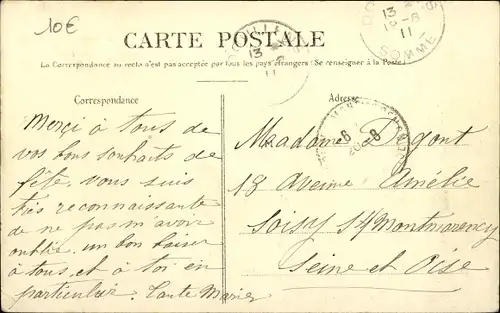 10€
CARTE POSTALE
La Correspondance au recto n'est pas acceptée par tous les pays étrangers (Se renseigner à la Poste)
Correspondance
Merci à tous de
vos bons souhaits de
fête, vous suis
très reconnaissante
de ne pas m'avoir
oublié. un bon baiser
à tous, et à toi en
particulier. Tante Marie
Adresse
Madame Dugont
18 Avenue Amélie
Soisy s/Montmorency
Seine et Oise
13
11
13
18-8
11
SOMME
6
20-8